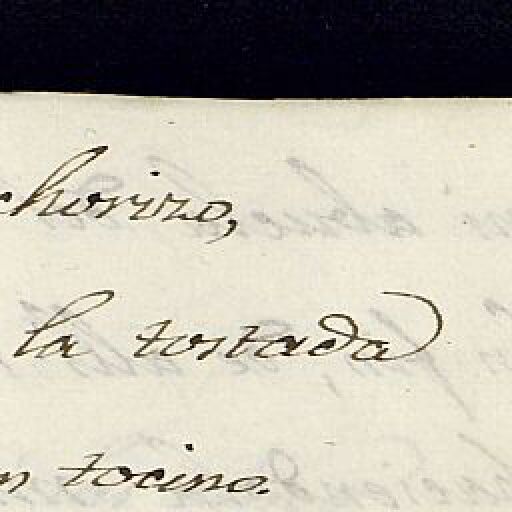 chorizo,
la tostada)
n tocino.